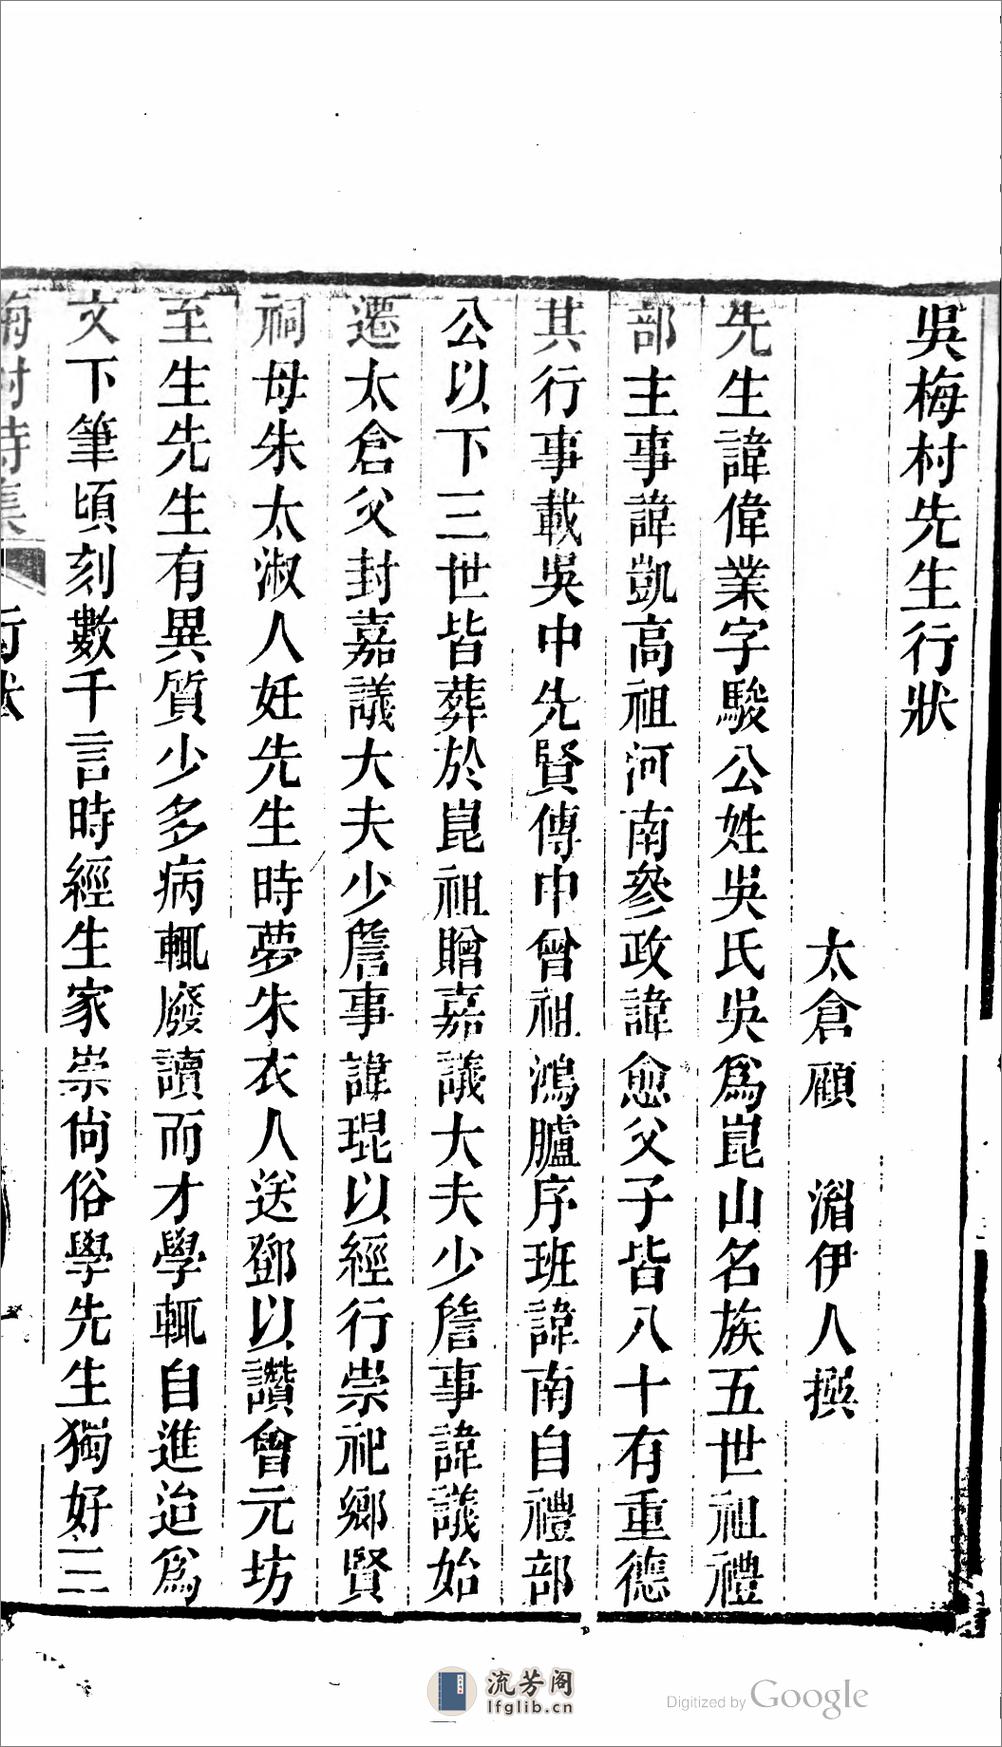 吳梅村先生行狀
太倉顧　湄伊人撰
先生諱偉業字駿公姓吳氏吳爲崑山名族五世祖禮
部主事諱凱高祖河南參政諱愈父子皆八十有重德
其行事載吳中先賢傳中曾祖鴻臚序班諱南自禮部
公以下三世皆葬於崑祖贈嘉議大夫少詹事諱議始
遷太倉父封嘉議大夫少詹事諱琨以經行崇祀鄉賢
祠母朱太淑人妊先生時夢朱衣人送鄧以讚會元坊
至生先生有異質少多病輒廢讀而才學輒自進迨爲
文下筆頃刻數千言時經生家崇尙俗學先生獨好三
梅村詩集
行狀
流芳阁
lfglib.cn
Digitized by Google